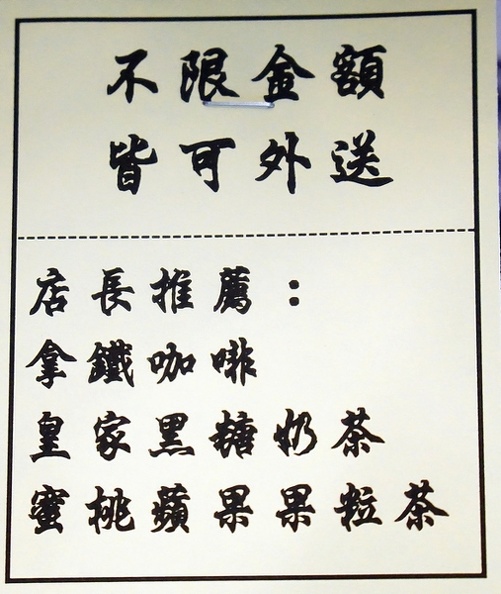 不限金額
皆可外送
店長推薦：
拿鐵咖啡
皇家黑糖奶茶
蜜桃蘋果果粒茶